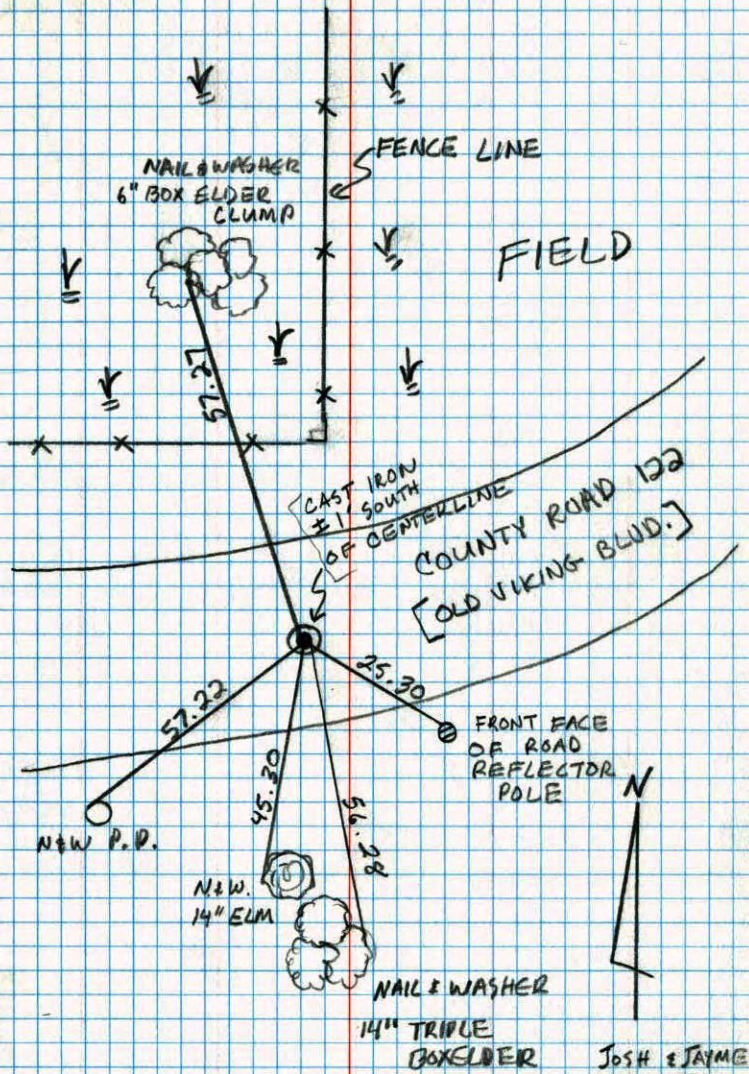 NAIL & WASHER
6" BOX ELDER
CLUMP
FENCE LINE
FIELD
57.27
CAST IRON
± 1' SOUTH
OF CENTERLINE
COUNTY ROAD 122
[OLD VIKING BLVD.]
57.22
25.30
45.30
56.28
FRONT FACE
OF ROAD
REFLECTOR
POLE
N
N&W P.P.
N.&W.
14" ELM
NAIL & WASHER
14" TRIPLE
BOXELDER
JOSH & JAYME